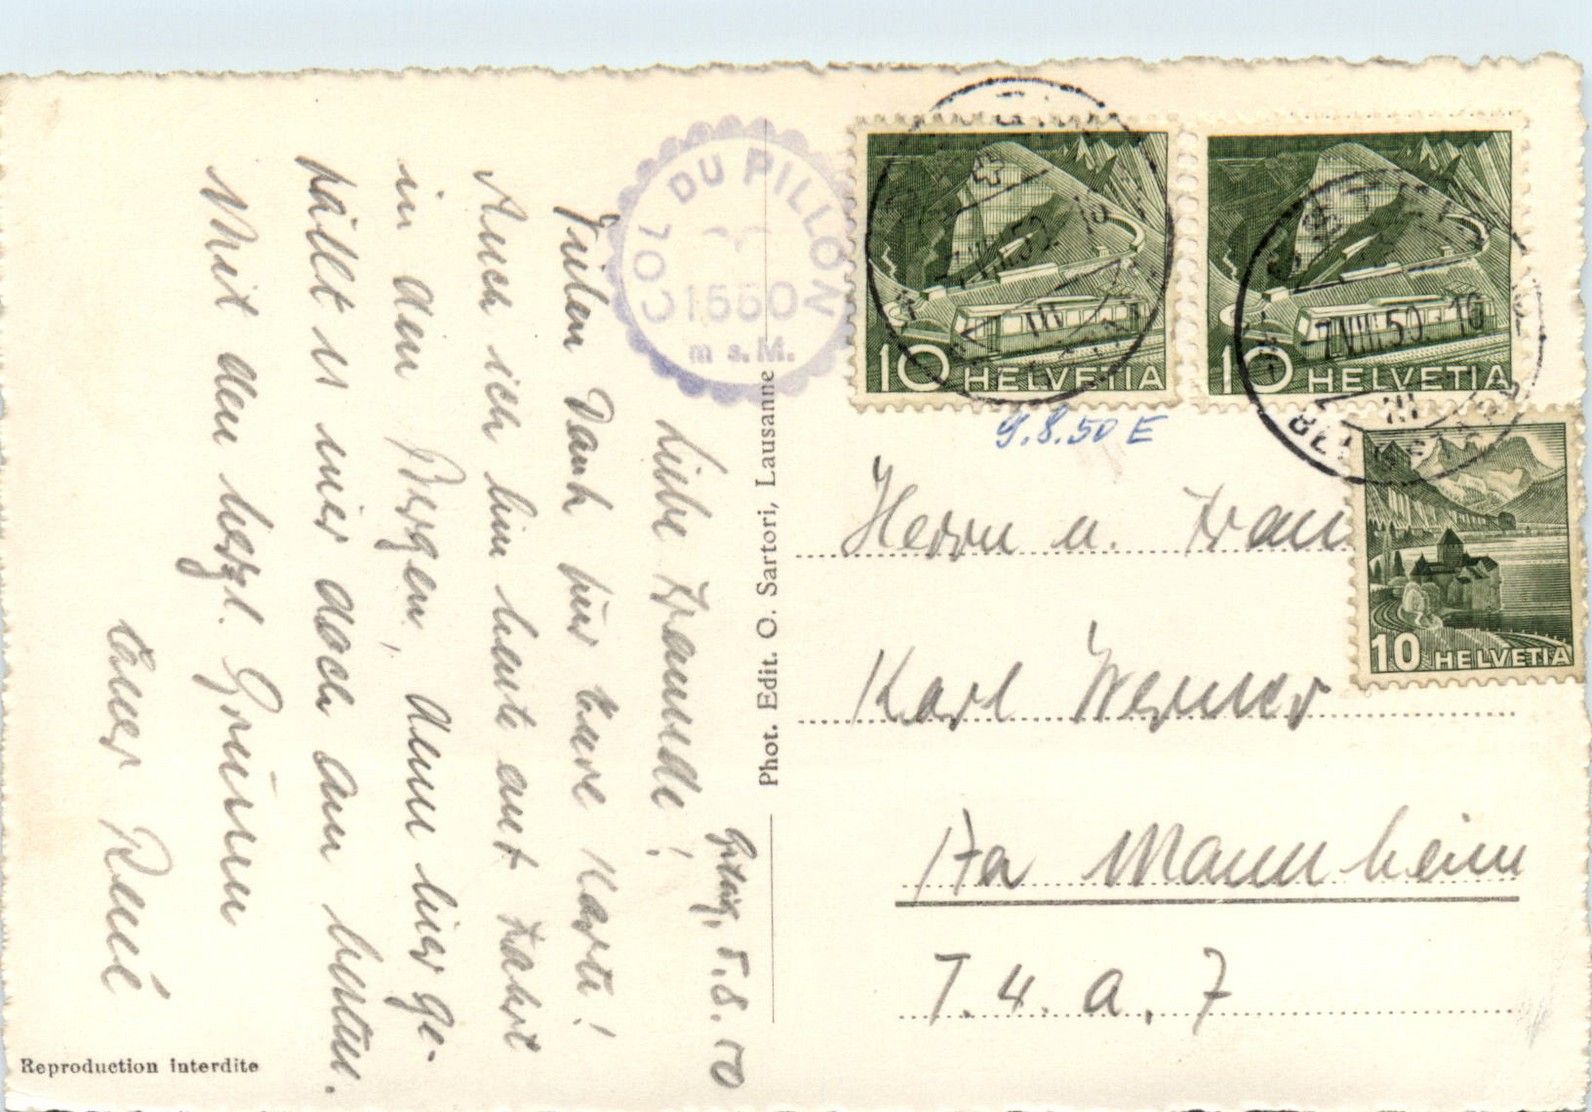 Gstaig, 5.8.50
Liebe Freunde!
Vielen Dank für Eure Karte!
Auch ich bin heute auf Fahrt
in den Bergen, denn hier ge-
fällt es mir doch am besten.
Mit den herzl. Grüssen
Euer René
Reproduction interdite
COL DU PILLON
1550
m s. M.
Phot. Edit. O. Sartori, Lausanne
10 HELVETIA
10 HELVETIA
-7.VIII.50.16
III
9.8.50 E
10 HELVETIA
Herrn u. Frau
Karl Werner
Mannheim
T. 4. a, 7